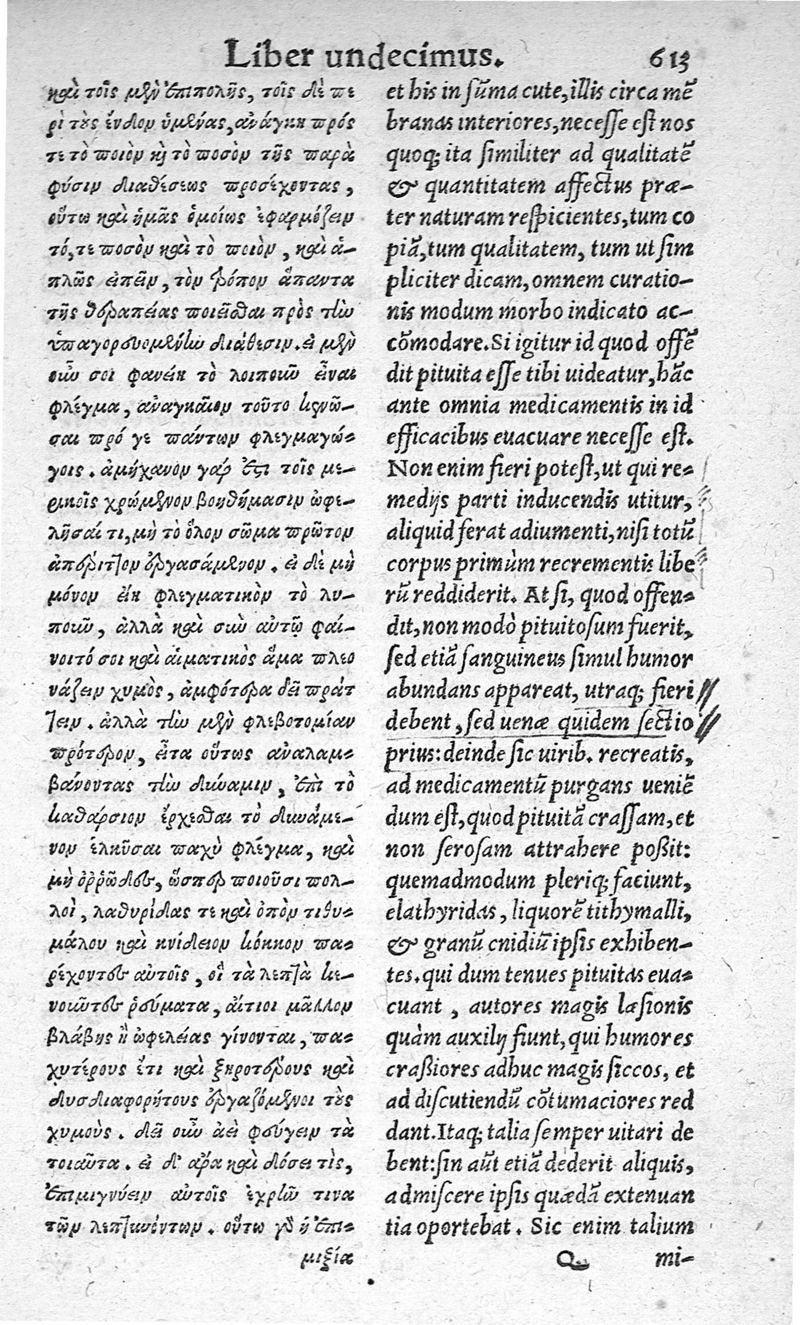 Liber undecimus. 613
καὶ τοῖς μὲν ἐπιπολῆς, τοῖς δὲ πε
ρὶ τοὺς ἔνδον ὑμένας, ἀνάγκη πρός
τε τὸ ποιὸν κὶ τὸ ποσὸν τῆς παρὰ
φύσιν διαθέσεως προσέχοντας,
οὕτω καὶ ἡμᾶς ὁμοίως ἐφαρμόζειν
τό,τε ποσὸν καὶ τὸ ποιὸν, καὶ ἁ-
πλῶς εἰπεῖν, τὸν τρόπον ἅπαντα
τῆς θεραπείας ποιεῖσθαι πρὸς τὴν
ὑπαγορευομένην διάθεσιν. εἰ μὲν
οὖν σοι φανείη τὸ λοιποῦν εἶναι
φλέγμα, ἀναγκαῖον τοῦτο κενῶ-
σαι πρό γε πάντων φλεγμαγώ-
γοις. ἀμήχανον γάρ ἐστι τοῖς με-
ρικοῖς χρώμενον βοηθήμασιν ὠφε-
λῆσαί τι, μὴ τὸ ὅλον σῶμα πρῶτον
ἀπέριττον ἐργασάμενον. εἰ δὲ μὴ
μόνον εἴη φλεγματικὸν τὸ λυ-
ποῦν, ἀλλὰ καὶ σὺν αὐτῷ φαί-
νοιτό σοι καὶ αἱματικὸς ἅμα πλεο
νάζειν χυμὸς, ἀμφότερα δεῖ πράτ
τειν. ἀλλὰ τὴν μὲν φλεβοτομίαν
πρότερον, εἶτα οὕτως ἀναλαμ-
βάνοντας τὴν δύναμιν, ἐπὶ τὸ
καθάρσιον ἔρχεσθαι τὸ δυνάμε-
νον ἑλκῦσαι παχὺ φλέγμα, καὶ
μὴ ὀῤῥῶδες, ὥσπερ ποιοῦσι πολ-
λοὶ, λαθυρίδας τε καὶ ὀπὸν τιθυ-
μάλου καὶ κνίδειον κόκκον πα-
ρέχοντες αὐτοῖς, οἳ τὰ λεπτὰ κε-
νοῦντες ῥεύματα, αἴτιοι μᾶλλον
βλάβης ἢ ὠφελείας γίνονται, πα-
χυτέρους ἔτι καὶ ξηροτέρους καὶ
δυσδιαφορήτους ἐργαζόμενοι τοὺς
χυμούς. δεῖ οὖν ἀεὶ φεύγειν τὰ
τοιαῦτα. εἰ δ' ἄρα καὶ δόσει τὶς,
ἐπιμιγνύειν αὐτοῖς ἐχρῆν τινα
τῶν λεπτυνόντων. οὕτω γὸ ἡ ἐπι-
μιξία
et his in sūma cute, illis circa mē
branas interiores, necesse est nos
quoq; ita similiter ad qualitatē
& quantitatem affectus præ-
ter naturam respicientes, tum co
piā, tum qualitatem, tum ut sim
pliciter dicam, omnem curatio-
nis modum morbo indicato ac-
cōmodare. Si igitur id quod offē
dit pituita esse tibi uideatur, hāc
ante omnia medicamentis in id
efficacibus euacuare necesse est.
Non enim fieri potest, ut qui re-
medijs parti inducendis utitur,
aliquid ferat adiumenti, nisi totū
corpus primùm recrementis libe
rū reddiderit. At si, quod offen-
dit, non modò pituitosum fuerit,
sed etiā sanguineus simul humor
abundans appareat, utraq; fieri
debent, sed uenæ quidem sectio
prius: deinde sic uirib. recreatis,
ad medicamentū purgans ueniē
dum est, quod pituitā crassam, et
non serosam attrahere poßit:
quemadmodum pleriq; faciunt,
elathyridas, liquorē tithymalli,
& granū cnidiū ipsis exhiben-
tes. qui dum tenues pituitas eua-
cuant, autores magis læsionis
quàm auxilij fiunt, qui humores
craßiores adhuc magis siccos, et
ad discutiendū cōtumaciores red
dant. Itaq; talia semper uitari de
bent: sin aūt etiā dederit aliquis,
admiscere ipsis quædā extenuan
tia oportebat. Sic enim talium
Q mi-